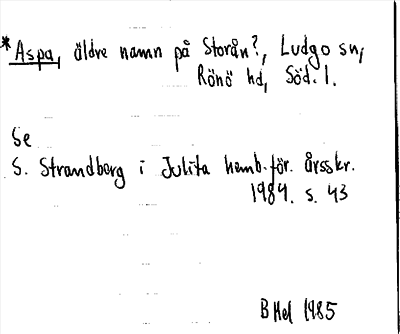 *Aspa, äldre namn på Storån?, Ludgo sn,
Rönö hd, Söd. l.
Se
S. Strandberg i Julita hemb.för. årsskr.
1984. s. 43
B Hel 1985